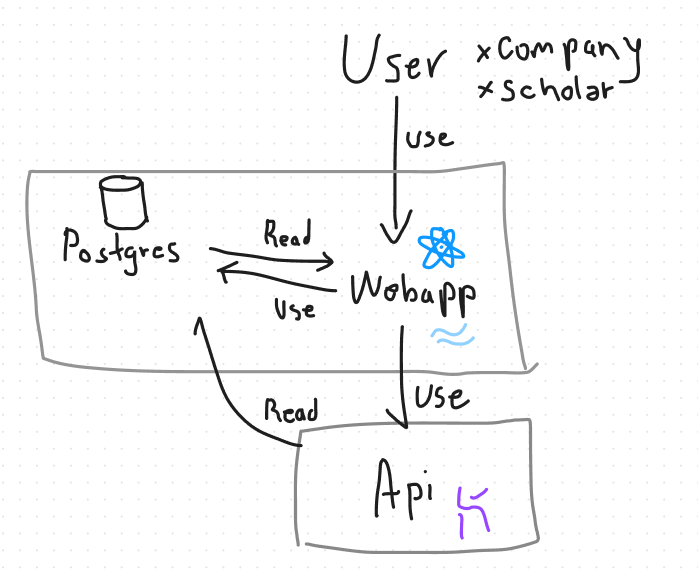 User
x Company
x Scholar
use
Postgres
Read
Use
Webapp
Use
Read
Api